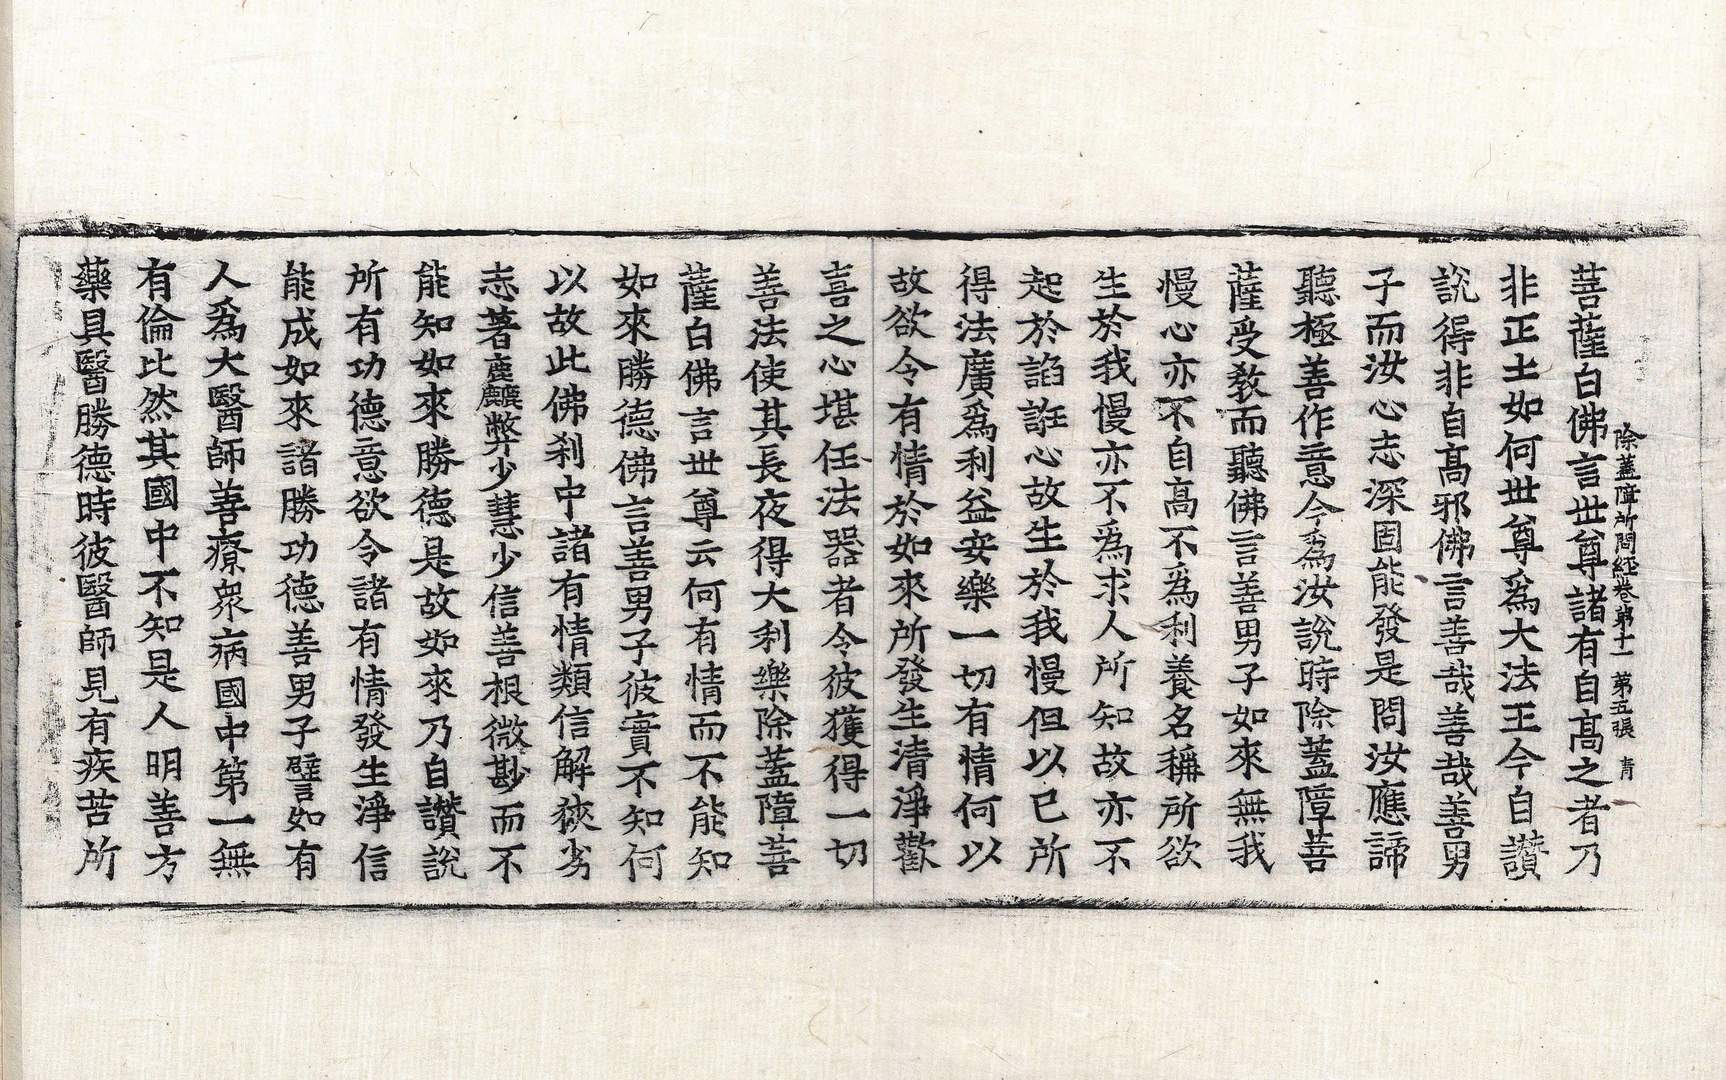 除蓋障所問經卷第十一 第五張 青
菩薩白佛言世尊諸有自髙之者乃
非正士如何世尊爲大法王今自讚
說得非自髙邪佛言善哉善哉善男
子而汝心志深固能發是問汝應諦
聽極善作意今爲汝說時除蓋障菩
薩受教而聽佛言善男子如來無我
慢心亦不自高不爲利養名稱所欲
生於我慢亦不爲求人所知故亦不
起於諂誑心故生於我慢但以已所
得法廣爲利益安樂一切有情何以
故欲令有情於如來所發生清淨歡
喜之心堪任法器者令彼獲得一切
善法使其長夜得大利樂除蓋障菩
薩白佛言世尊云何有情而不能知
如來勝德佛言善男子彼實不知何
以故此佛刹中諸有情類信解狹劣
志著麁弊少慧少信善根微尠而不
能知如來勝德是故如來乃自讚說
所有功德意欲令諸有情發生淨信
能成如來諸勝功德善男子譬如有
人爲大醫師善療衆病國中第一無
有倫比然其國中不知是人明善方
藥具醫勝德時彼醫師見有疾苦所